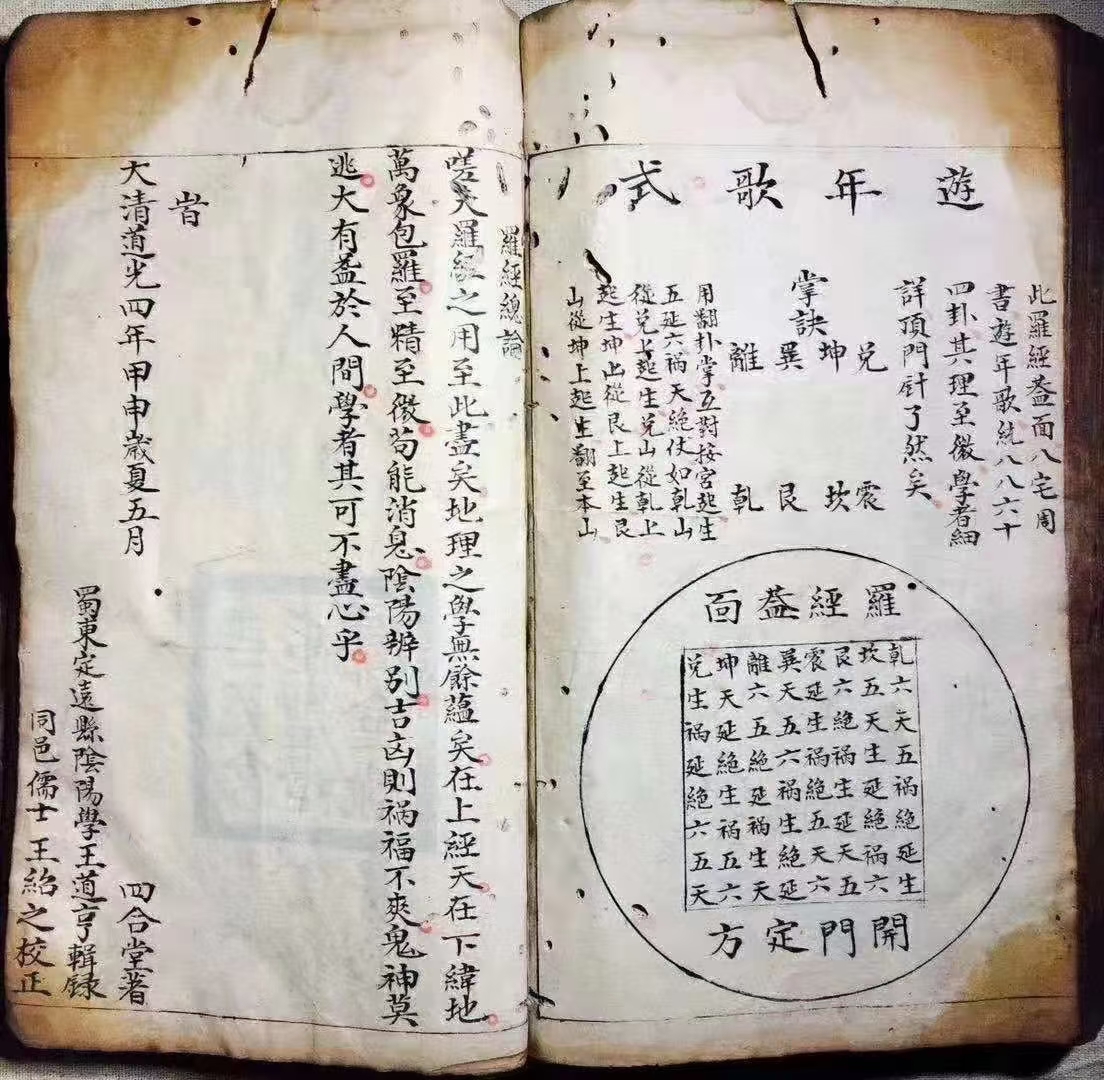 遊年歌式
此羅經蓋面八宅周
書遊年歌統八八六十
四卦其理至微學者細
詳頂門針了然矣
掌訣
兌坤巽離
震坎艮乾
用翻卦掌互對按宮起生
五延六祸天絶仗如乾山
從兌上起生兌山從乾上
起生坤山從艮上起生艮
山從坤上起生翻至本山
羅經蓋面
乾六天五祸絶延生
坎五天生延絶祸六
艮六絶祸生延天五
震延生祸絶五天六
巽天五六祸生絶延
離六五絶延祸生天
坤天延絶生祸五六
兌生祸延絶六五天
開門定方
羅經總論
嗟夫羅經之用至此盡矣地理之學無餘蘊矣在上經天在下緯地
萬象包羅至精至微苟能消息陰陽辨别吉凶則祸福不爽鬼神莫
逃大有益於人間學者其可不盡心乎
旹
大清道光四年甲申歲夏五月
四合堂著
蜀東定遠縣陰陽學王道亨輯錄
同邑儒士王紹之校正